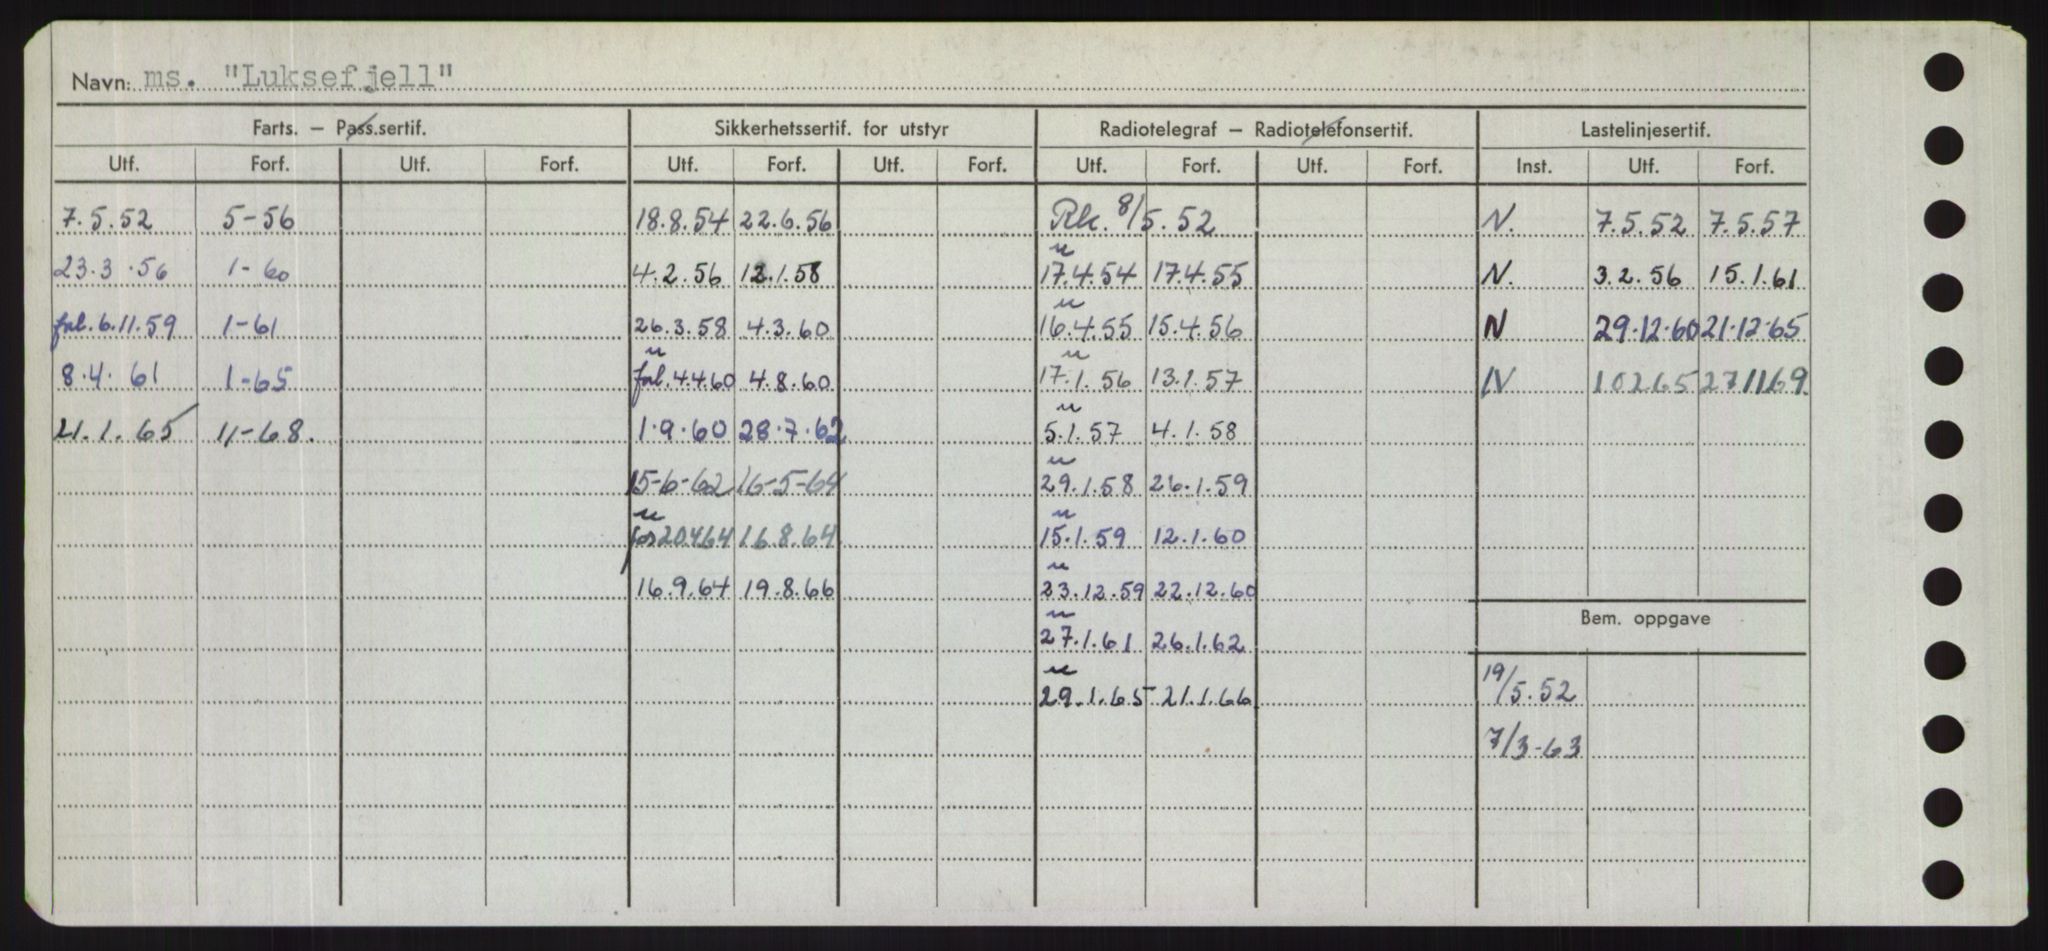 Navn: ms. "Luksefjell"
Farts. – Pass.sertif. Sikkerhetssertif. for utstyr Radiotelegraf – Radiotelefonsertif. Lastelinjesertif.
Utf. Forf. Utf. Forf. Utf. Forf. Utf. Forf. Utf. Forf. Utf. Forf. Inst. Utf. Forf.
7.5.52 5-56 18.8.54 22.6.56 Rk. 8/5.52 N. 7.5.52 7.5.57
23.3.56 1-60 4.2.56 12.1.58 u 17.4.54 17.4.55 N. 3.2.56 15.1.61
6.11.59 1-61 26.3.58 4.3.60 u 16.4.55 15.4.56 N 29.12.60 21.12.65
8.4.61 1-65 u 4.4.60 4.8.60 u 17.1.56 13.1.57 N 10265 271169
21.1.65 11-68. 1.9.60 28.7.62 u 5.1.57 4.1.58
15-6-62 16-5-64 u 29.1.58 26.1.59
u 20464 16.8.64 u 15.1.59 12.1.60
16.9.64 19.8.66 u 23.12.59 22.12.60
Bem. oppgave
u 27.1.61 26.1.62
u 29.1.65 21.1.66 19/5.52
7/3-63